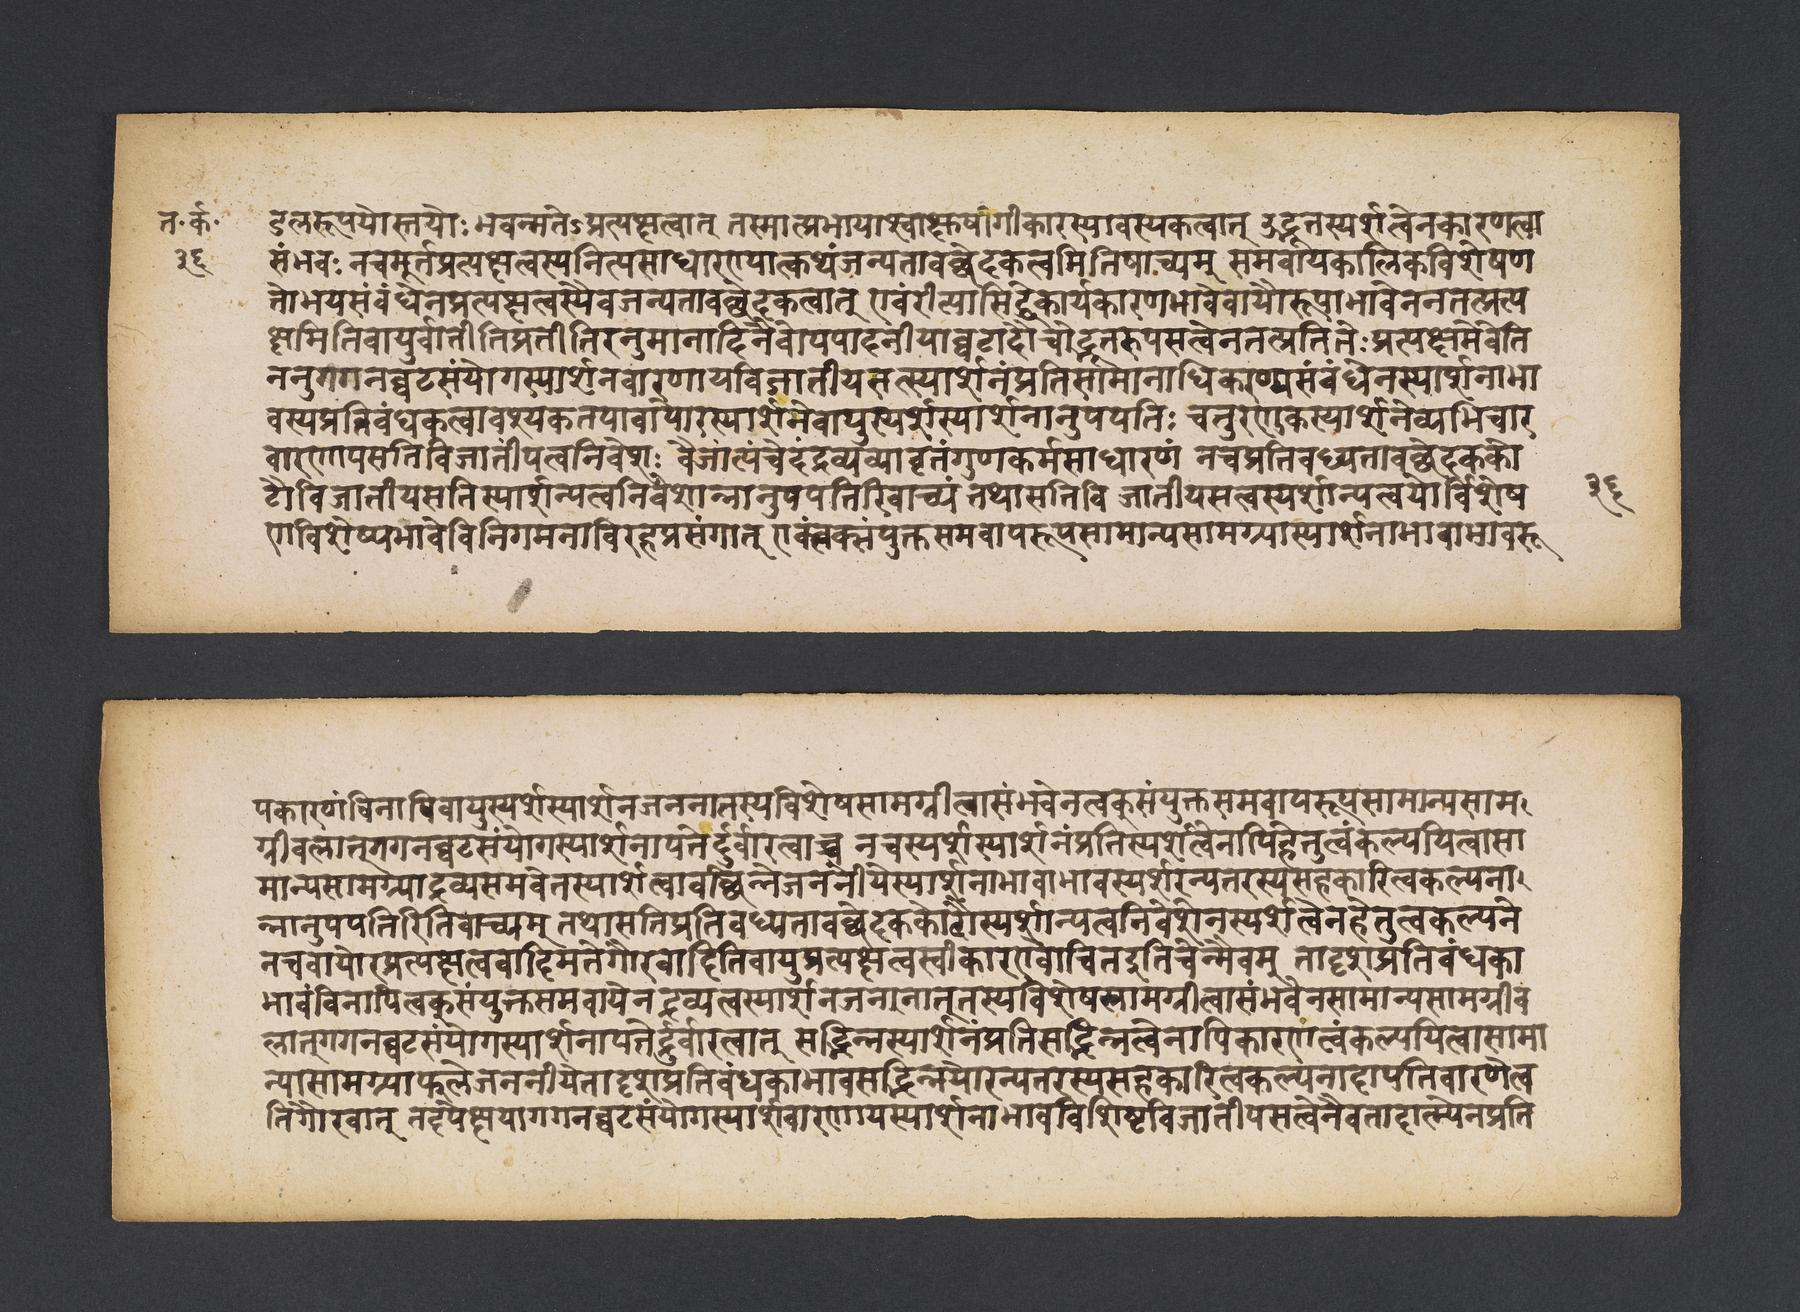 त॰र्क॰
३६
ड्लरूपयोस्तयोः भवन्मतेऽप्रत्यक्षत्वात् तस्मात्प्रभायाश्चाक्षुषांगीकारस्यावस्यकत्वात् उद्भूतस्पर्शत्वेनकारणत्वा
संभवः नचमूर्तप्रत्यक्षत्वस्यनित्यसाधारणयात्कथंजन्यतावच्छेदकत्वमितिवाच्यम् समवायकालिकविशेषण
तोभयसंबंधेनप्रत्यक्षत्वस्यैवजन्यतावच्छेदकत्वात् एवंरीत्यासिद्धेकार्यकारणभावेवायौरूपाभावेनेनतत्प्रत्य
क्षमितिवायुर्वातीतिप्रतीतिरनुमानादिनैवोपपादनीयाघटादौचोद्भूतरूपसत्वेनतत्प्रतितेः प्रत्यक्षमेवेति
ननुगगनघटसंयोगस्पार्शनवारणायविजातीयसत्स्पार्शनंप्रतिसामानाधिकरण्यसंबंधेनस्पार्शनाभा
वस्यप्रतिबंधकत्वावश्यकतयावायोरस्पार्शमेवायुस्पर्शस्पार्शनानुपपतिः चतुरणुकस्पार्शनेव्यभिचार
वारणायसतिविजातीयत्वनिवेशः वैजात्यंचेदंद्रव्यव्यावृतंगुणकर्मसाधारणं नचप्रतिबध्यतावच्छेदकको
टौविजातीयसतिस्पार्शन्यत्वनिवेशोन्नानुपपत्तिरिवाच्यं तथासतिवि जातीयसत्वस्पर्शान्यत्वयोर्विशेष
णविशेष्यभावेविनिगमनाविरहप्रसंगात् एवंत्वक्संयुक्तसमवायरूपसामान्यसामग्र्यास्पार्शनाभावाभावरू
३६
पकारणंविनापिवायुस्पर्शस्पार्शनजननातस्यविशेषसामग्रीत्वासंभवेनत्वक्संयुक्तसमवायरूपसामान्यसाम
ग्रीबलात्गगनघटसंयोगस्पार्शनापत्तेर्दुर्वारत्वाच्च नचस्पर्शस्पार्शनंप्रतिस्पर्शत्वेनापिहेतुत्वंकल्पयित्वासा
मान्यसामग्र्याद्रव्यसमवेतस्पार्शत्वावच्छिन्नेजननीयेस्पार्शनाभावाभावस्पर्शरन्यतरस्यसहकारित्वकल्पना
न्नानुपपतिरितिवाच्यम् तथासतिप्रतिबध्यतावच्छेदककोटौस्पर्शान्यत्वनिवेशेनस्पर्शत्वेनहेतुत्वकल्पने
नचवायोरप्रत्यक्षत्ववादिमतेगौरवादितिवायुप्रत्यक्षत्वस्वीकारएवोचितइतिचेन्मैवम् तादृशप्रतिबंधका
भावंविनापित्वक्संयुक्तसमवायेनद्रव्यत्वस्पार्शनजनानात्तस्यविशेषसामग्रीत्वासंभवेनसामान्यसामग्रीब
लात्गगनघटसंयोगस्पार्शनापत्तेर्दुर्वारत्वात् सद्भिन्नस्पार्शनंप्रतिसद्भिन्नत्वेनापिकारणत्वंकल्पयित्वासामा
न्यासामग्र्याफलेजननीयेतादृशप्रतिबंधकाभावसद्भिन्नयोरन्यतरस्यसहकारित्वकल्पनादापतिवारणेत्व
तिगौरवात् तदपेक्षयागगनघटसंयोगस्पार्शवारणायस्पार्शनाभावविशिष्टविजातीयसत्वेनैवतादात्म्येनप्रति